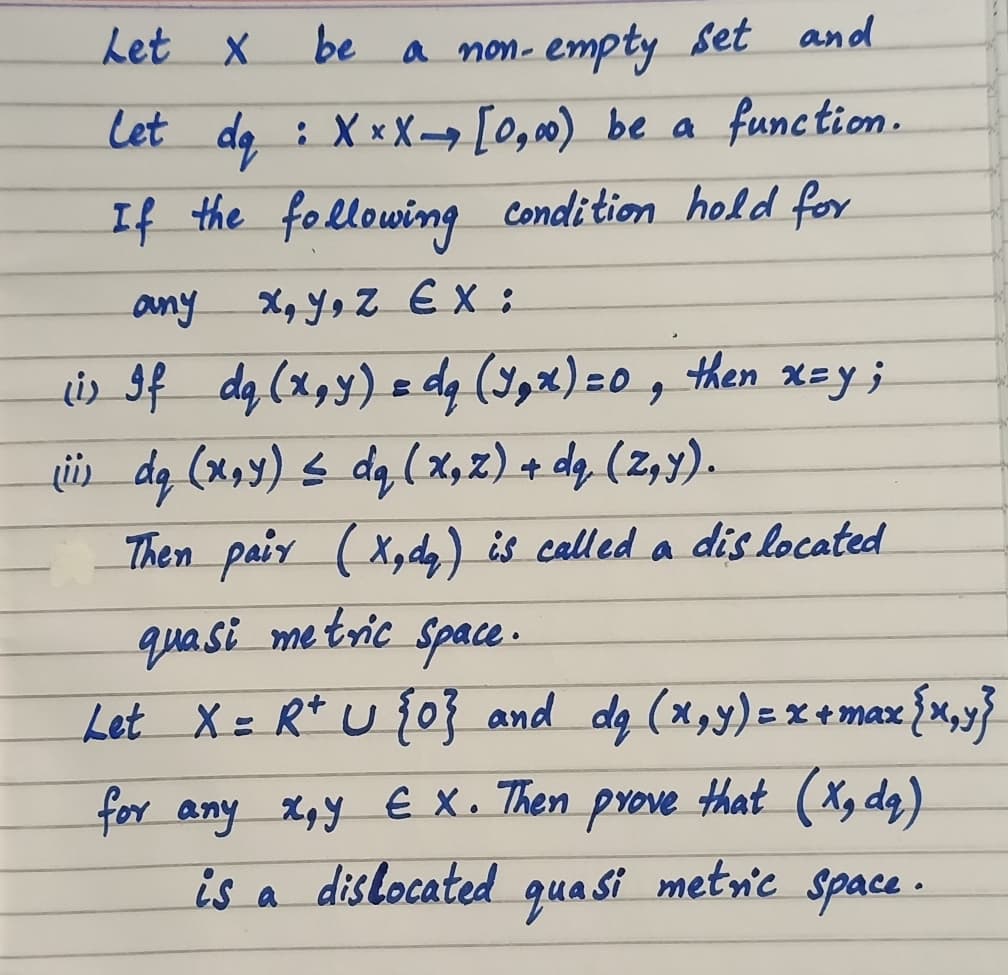 Let X be a non-empty set and
Let dq : X × X → [0,∞) be a function.
If the following condition hold for
any x, y, z ∈ X :
(i) If dq (x,y) = dq (y,x) = 0 , then x=y ;
(ii) dq (x,y) ≤ dq (x,z) + dq (z,y).
Then pair (X,dq) is called a dislocated
quasi metric space.
Let X = R⁺ ∪ {0} and dq (x,y) = x + max{x,y}
for any x,y ∈ X. Then prove that (X,dq)
is a dislocated quasi metric space.